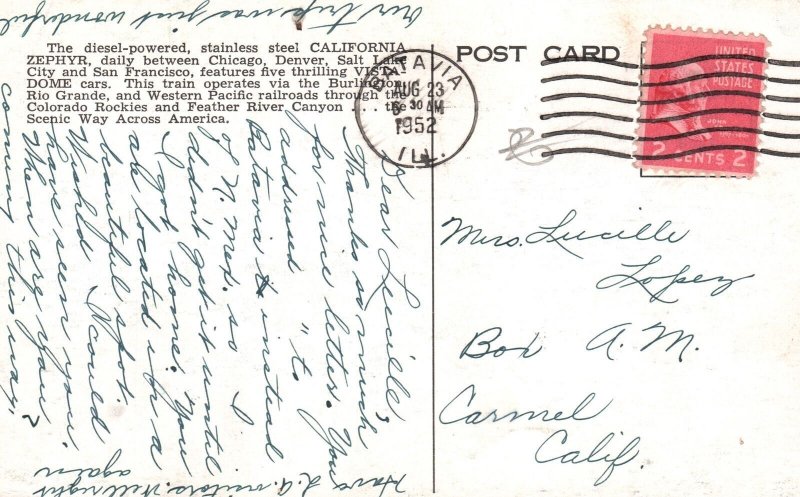 The diesel-powered, stainless steel CALIFORNIA
ZEPHYR, daily between Chicago, Denver, Salt Lake
City and San Francisco, features five thrilling VISTA-
DOME cars. This train operates via the Burlington,
Rio Grande, and Western Pacific railroads through the
Colorado Rockies and Feather River Canyon . . . the
Scenic Way Across America.
POST CARD
BATAVIA
AUG 23
8 30 AM
1952
ILL.
UNITED
STATES
POSTAGE
JOHN
2 CENTS 2
Mrs. Lucille
Lopez
Box A. M.
Carmel
Calif.
Dear Lucille,
Thanks so much
for nice letter. You
addressed to
Batavia instead
of N. so I
didn't get it until
I got home. You
are located in a
beautiful spot.
Wish I could
have seen you.
When are you
coming this way?
Our trip was just wonderful
Have L.A. visitors right
again